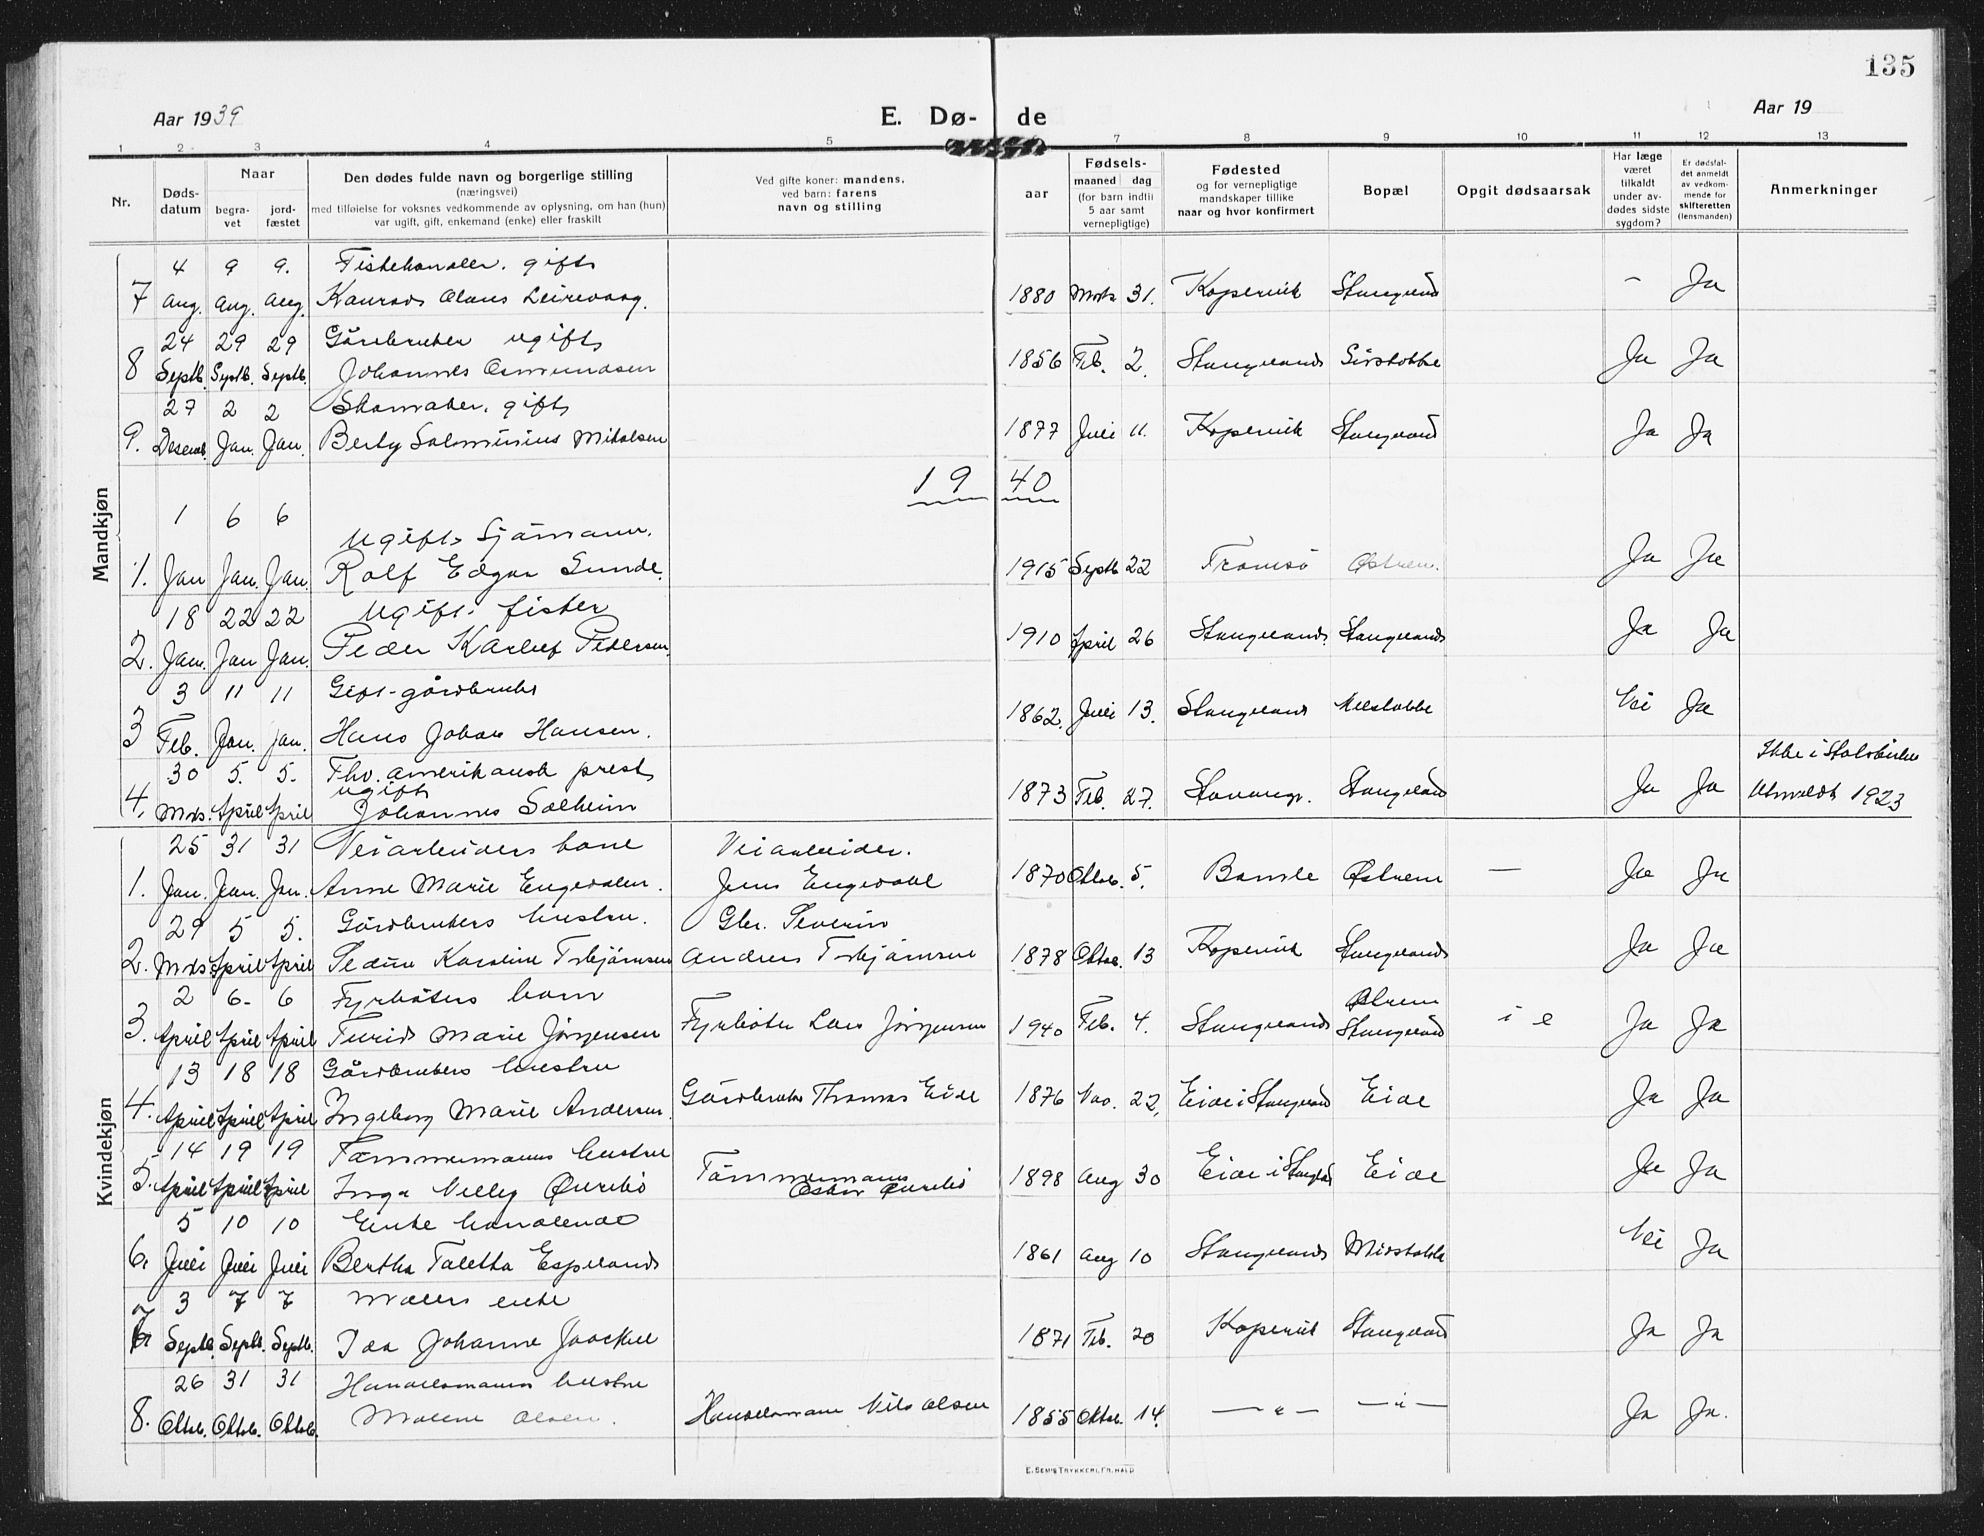 135
Aar 1939
E. Dø-
de
Aar 19
1 2 3 4 5 7 8 9 10 11 12 13
Nr.
Døds-
datum
Naar
begra-
vet
jord-
fæstet
Den dødes fulde navn og borgerlige stilling
(næringsvei)
med tilføielse for voksnes vedkommende av oplysning, om han (hun)
var ugift, gift, enkemand (enke) eller fraskilt
Ved gifte koner: mandens,
ved barn: farens
navn og stilling
aar
Fødsels-
maaned dag
(for barn indtil
5 aar samt
vernepligtige)
Fødested
og for vernepligtige
mandskaper tillike
naar og hvor konfirmert
Bopæl
Opgit dødsaarsak
Har læge
været
tilkaldt
under av-
dødes sidste
sygdom?
Er dødsfal-
det anmeldt
av vedkom-
mende for
skifteretten
(lensmanden)
Anmerkninger
Mandkjøn
4 9 9. Fiskehandler. gift
7 Aug. Aug. Aug. Konrad Olaus Leirevaag. 1880 Mars 31. Kopervik Stangeland - Ja
24 29 29 Gårdbruker ugift
8 Septb. Septb. Septb. Johannes Osmundsen 1856 Feb. 2. Stangeland Ja Ja
27 2 2 Skomaker. gift
9. Desemb. Jan. Jan. Berty Salominius Mikalsen 1877 Juli 11. Kopervik Stangeland Ja Ja
19 40
1 6 6 Ugift Sjømann.
1. Jan Jan. Jan. Rolf Edgar Sunde. 1915 Septb 22 Tromsø Østrem. Ja Ja
18 22 22 Ugift fisker
2. Jan. Jan Jan. Peder Karluf Pedersen. 1910 April 26 Stangeland. Stangeland Ja Ja
3 11 11 Gift-gårdbruker
3 Feb. Jan. Jan. Hans Johan Hansen. 1862. Juli 13. Stangeland Nei Ja
30 5. 5. Fhv. amerikansk prest
ugift
4. Mrs. April April Johannes Solheim 1873 Feb. 27. Stavanger. Stangeland Ja Ja
Ikke i Statskirken
Utmeldt 1923
Kvindekjøn
25 31 31 Veiarbeiders kone Veiarbeider.
1. Jan. Jan. Jan. Anne Marie Engedalen. Jens Engedahl 1870 Oktob. 5. Bamle Østrem — Ja Ja
29 5 5. Gårdbrukers hustru. Gbr. Severin
2. Mrs. April April Karoline Torbjørnsen Andreas Torbjørnsen 1878 Oktob. 13 Kopervik Stangeland Ja Ja
2 6- 6 Fyrbøters barn Østrem
3. April April April Turid Marie Jørgensen Fyrbøter Lars Jørgensen 1940 Feb. 4. Stangeland Stangeland Ja Ja
13 18 18 Gårdbrukers hustru
4. April April April Ingeborg Marie Andersen Gårdbruker Thomas Eide 1876 Nov. 22. Eide i Stangeland Eide Ja Ja
14 19 19 Tømmermanns hustru
5. April April April Inga Nelly Øvrebø Tømmermann
Oskar Øvrebø 1898 Aug 30 Eide i Stangeland Eide Ja Ja
5 10 10 Enke handlende
6. Juli Juli Juli Bertha Taletta Espeland 1861 Aug 10 Stangeland Midstokke Nei Ja
3 7 7 Malers enke
7 Septb. Septb. Septb. Ida Johanne 1871 Feb. 20 Kopervik Stangeland Ja Ja
26 31 31 Handelsmanns hustru
8. Oktob. Oktob. Oktob. Malene Olsen. Handelsmann Nils Olsen 1855 Oktob. 14. — " — — " — Ja Ja.
E. SEM'S TRYKKERI, FR.HALD